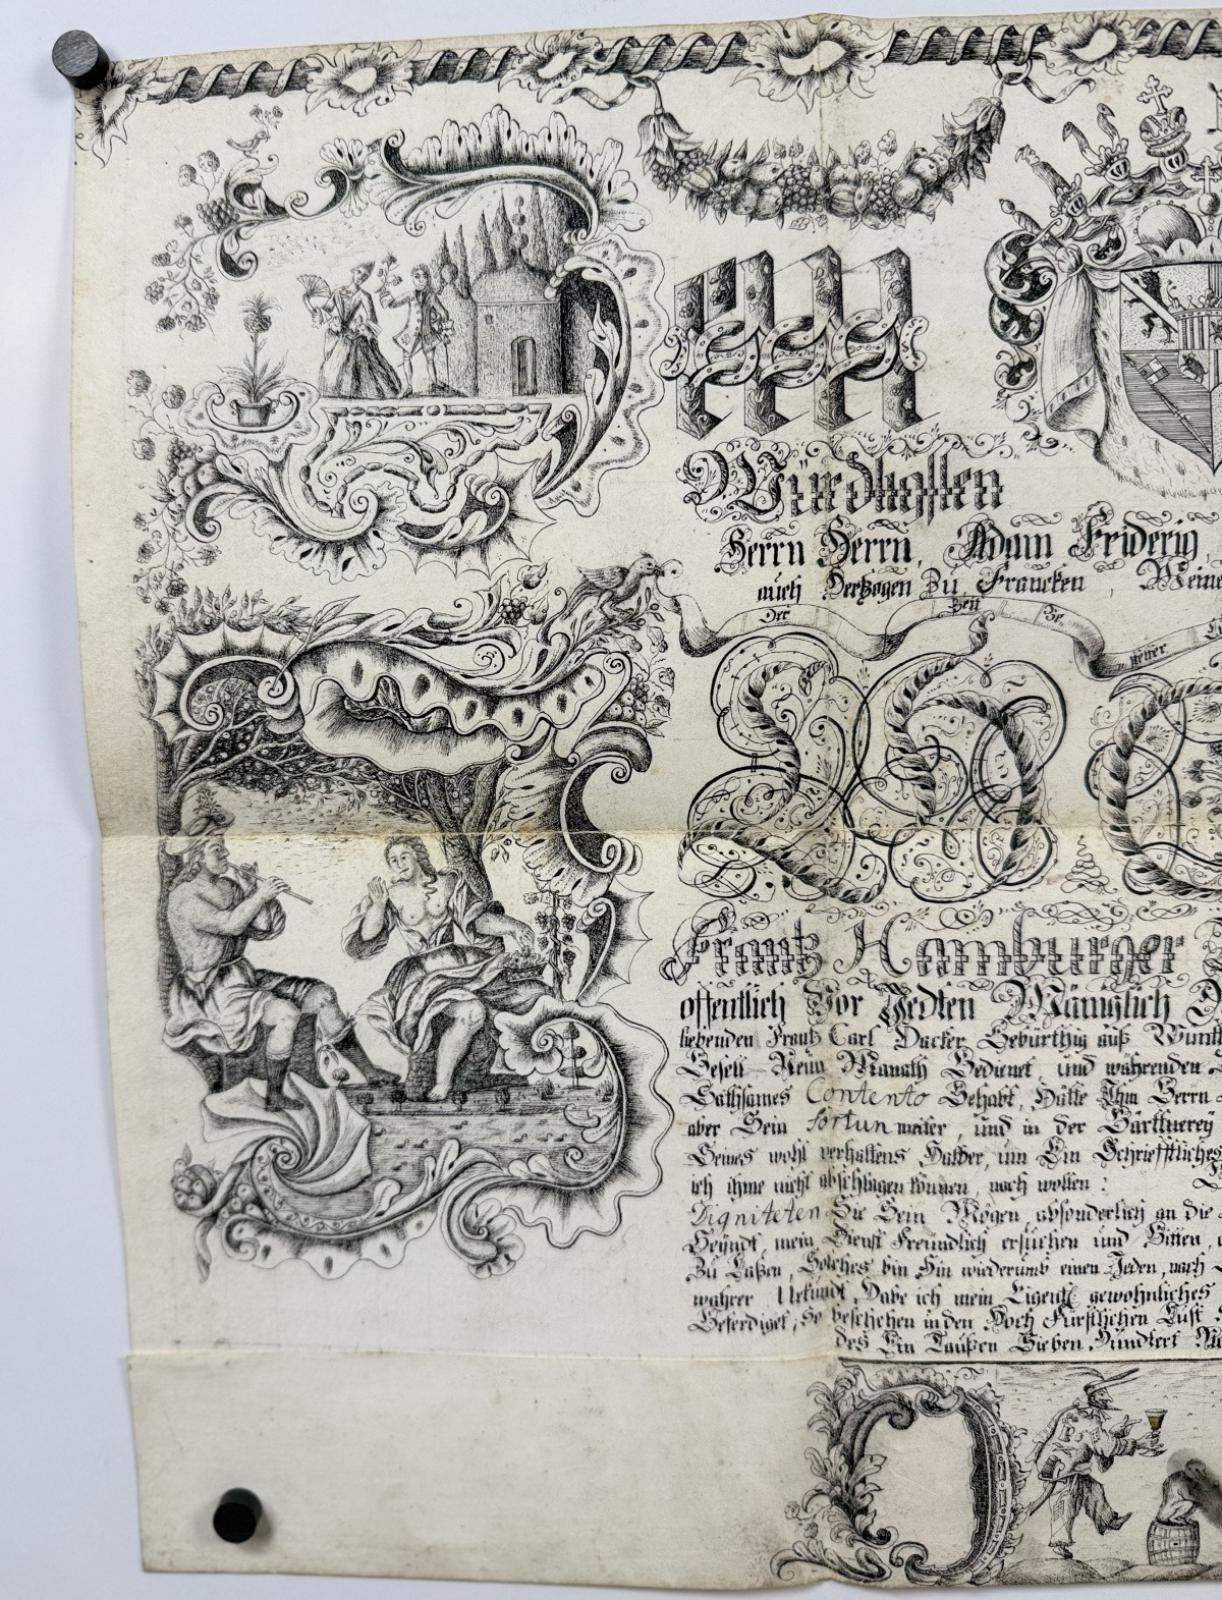 Würdhafften
Herrn Herrn, Adam Friderig,
auch Hertzogen Zu Francken, Meine
Der Zeit
Frantz Hamburger
offentlich Vor Jedten Männiglich
liebenden Frantz Carl Dacker Gebürthig auß
Gesell Neun Monath Bedienet, und währenden
Sathsames Contento Gehabt, Hätte Ihm Herrn
aber Sein fortun weiter, und in der Gärttnerey
Seines wohl verhaltens Halber, um Ein Schriefftliches
ich ihme nicht abschlagen können, noch wollen:
Digniteten Sie Sein Mögen absonderlich an die
Seyndt, mein Dienst Freundlich ersuchen und Bitten,
Zu Laßen, Solches bin hin wiederumb einen Jeden, nach
wahrer Urkundt Habe ich mein Eigent gewohnliches
Beferdiget, So beschehen in den Hoch Fürstlichen Lust
des Ein Taußen Sieben Hundtert